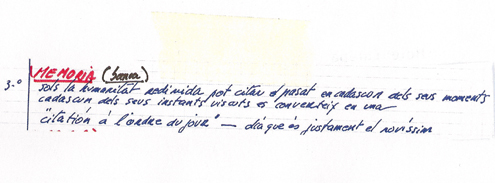 MEMORIA (banca)
3.º sols la humanitat redimida pot citar el passat en cadascun dels seus moments
cadascun dels seus instants viscuts es converteix en una
"citation à l'ordre du jour" — dia que és justament el novíssim